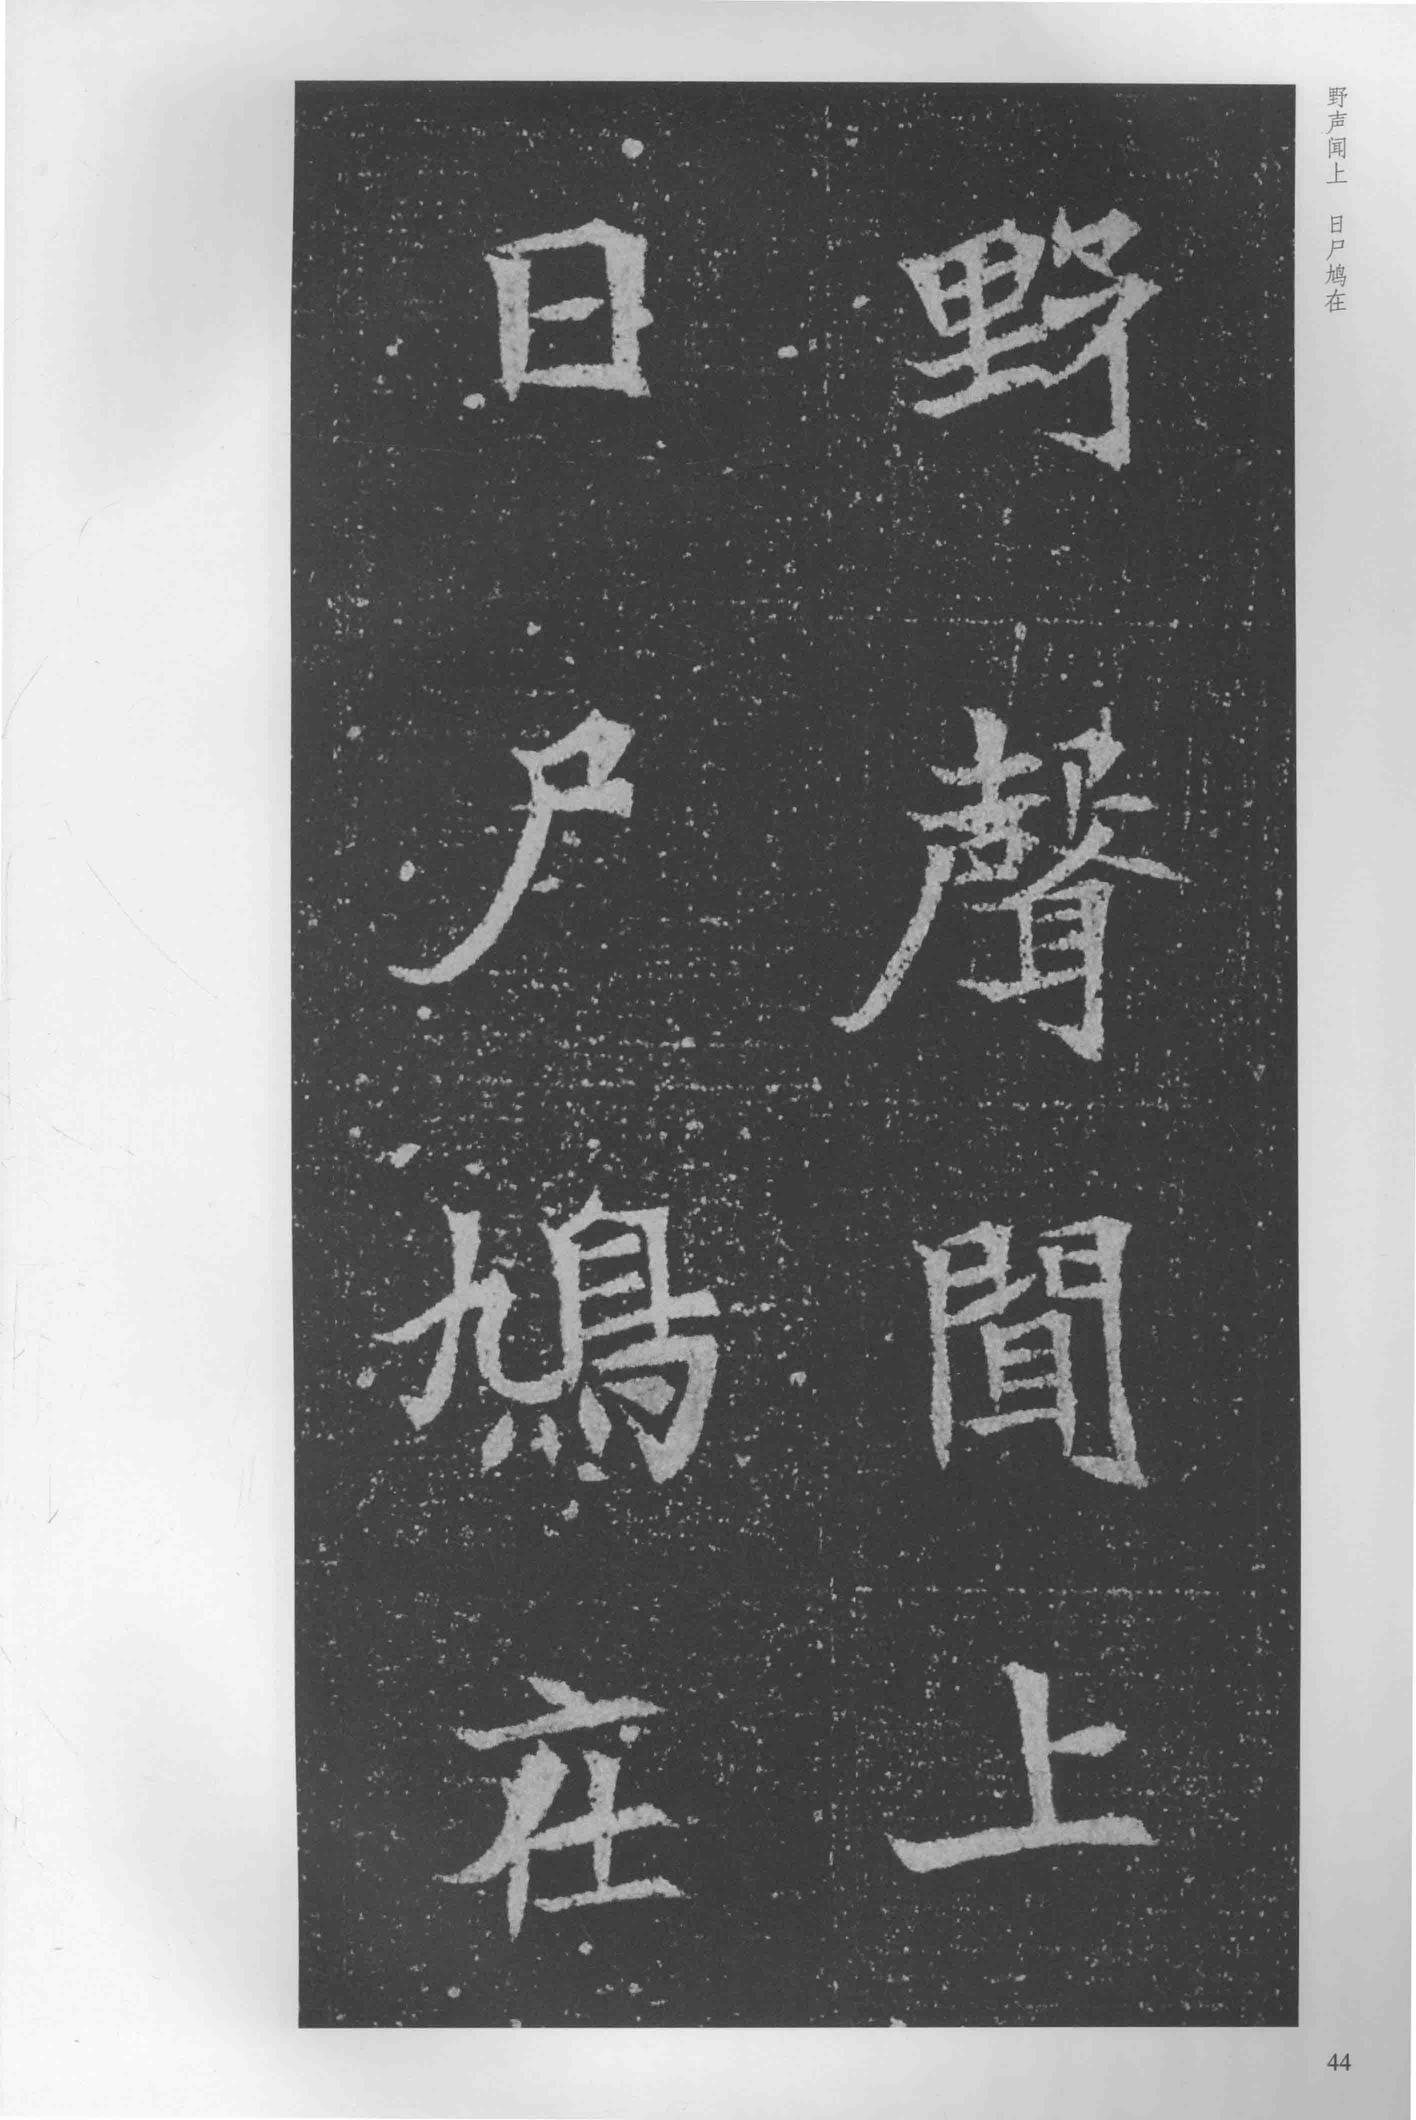 野聲聞上
日尸鳩在
野声闻上 日尸鸠在
44